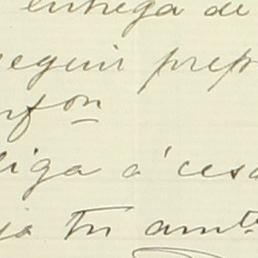 entrega de
seguir prep
nfon
liga á cesa
ja tu amte.